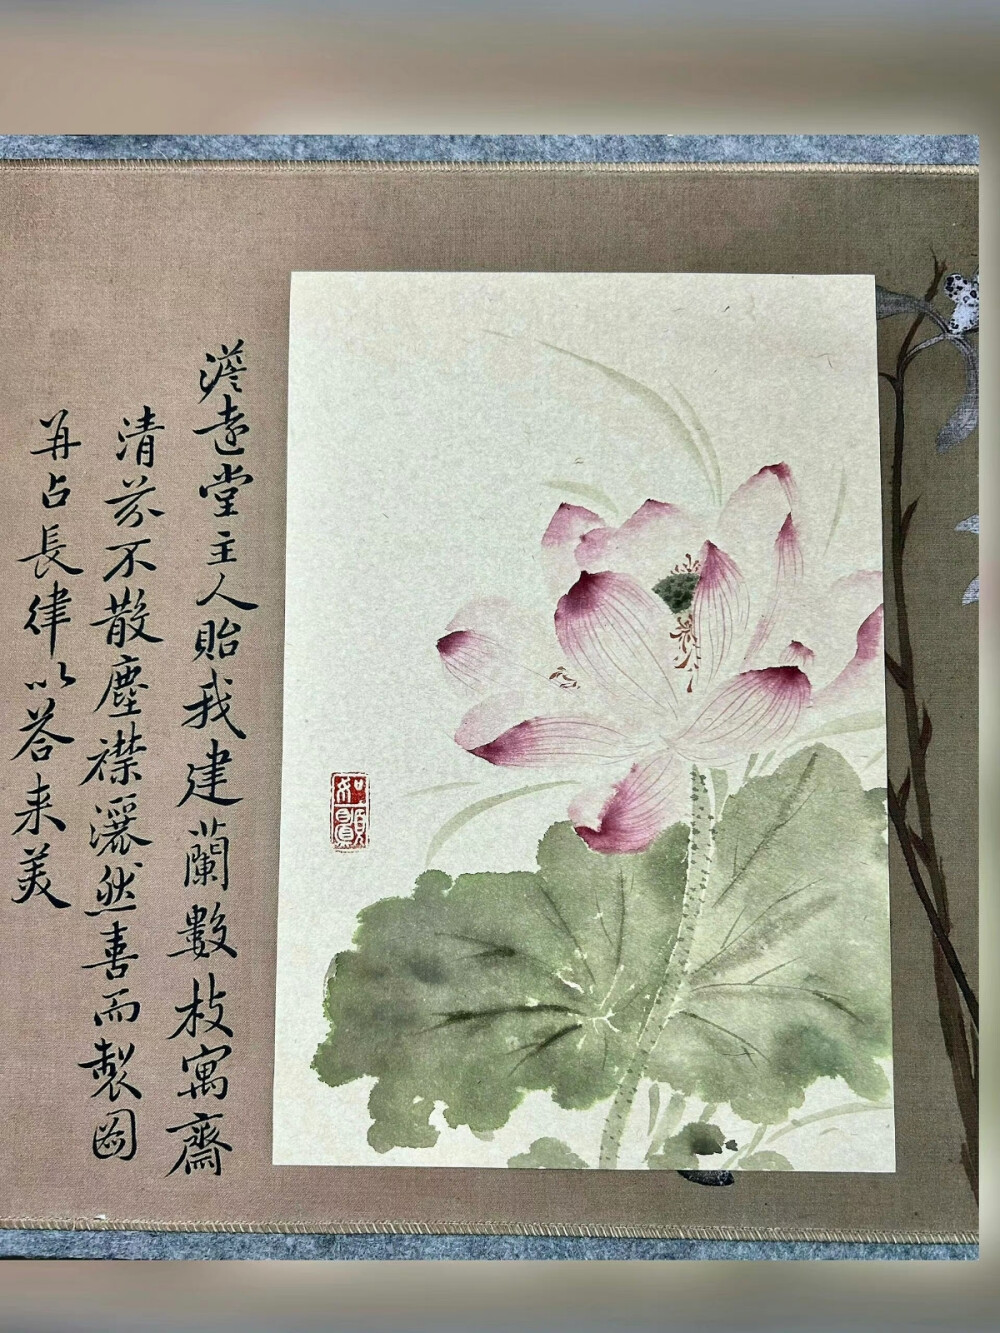 澹遠堂主人貽我建蘭數枝寓齋
清芬不散塵襟灑然喜而製圖
并占長律以答来美
如願